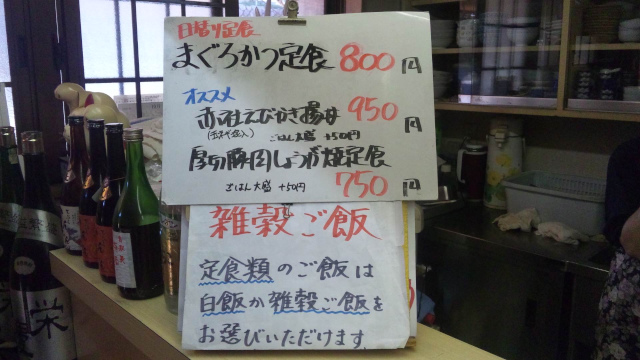 日替り定食
まぐろかつ定食 800円
オススメ
赤社えびかき揚丼 950円
ごはん大盛 +50円
厚切豚肉しょうが焼定食
ごはん大盛 +50円 750円
雑穀ご飯
定食類のご飯は
白飯か雑穀ご飯を
お選びいただけます
栄